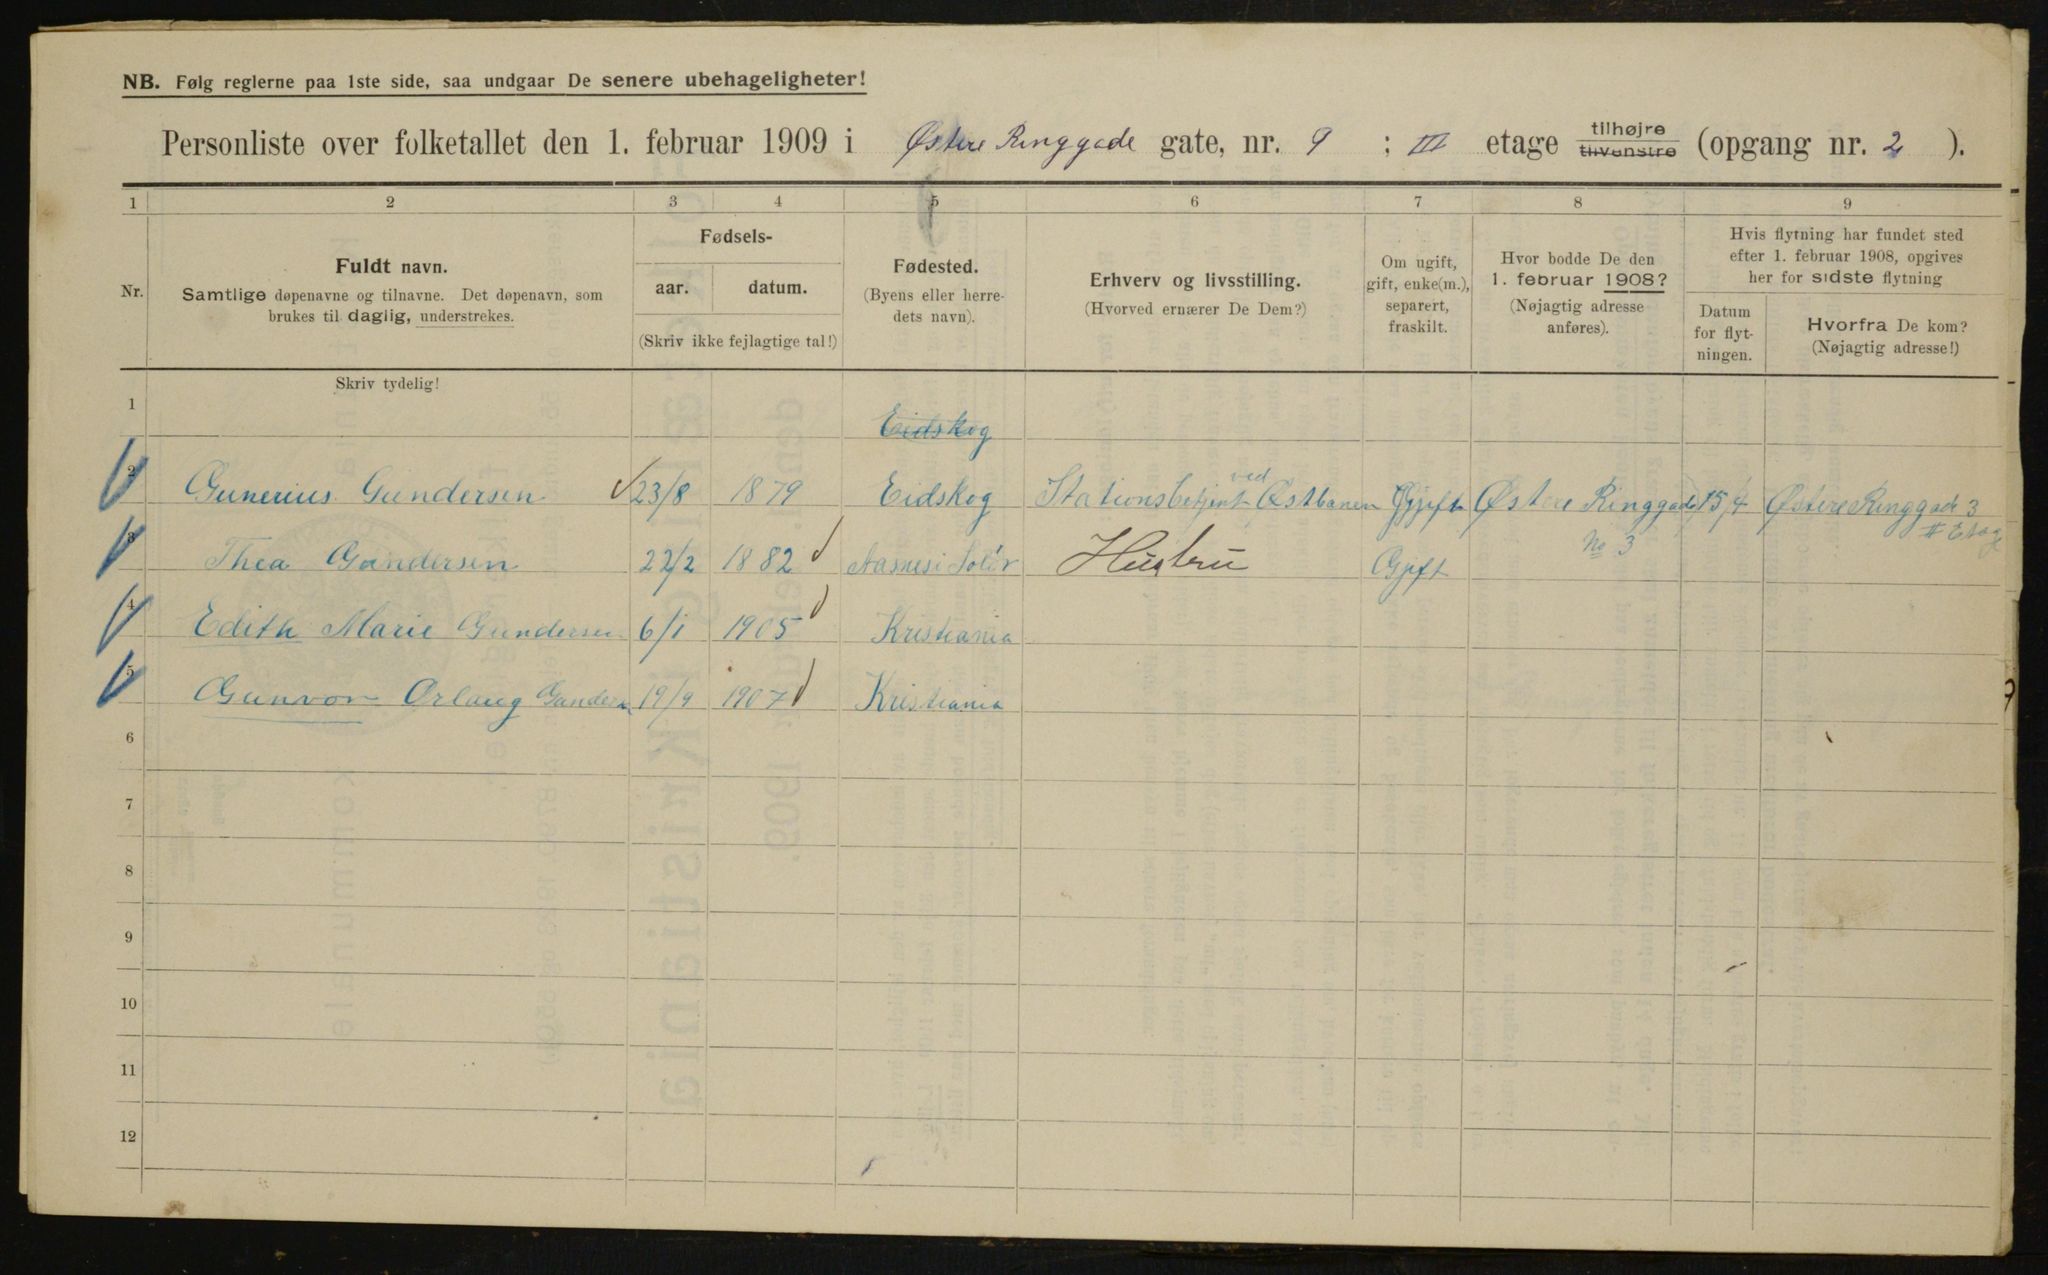 NB. Følg reglerne paa 1ste side, saa undgaar De senere ubehageligheter!
Personliste over folketallet den 1. februar 1909 i Østere Ringgade gate, nr. 9 ; III etage tilhøjre tilvenstre (opgang nr. 2 ).
1 2 3 4 5 6 7 8 9
Nr.
Fuldt navn.
Samtlige døpenavne og tilnavne. Det døpenavn, som
brukes til daglig, understrekes.
Skriv tydelig!
Fødsels-
aar. datum.
(Skriv ikke fejlagtige tal!)
Fødested.
(Byens eller herre-
dets navn).
Erhverv og livsstilling.
(Hvorved ernærer De Dem?)
Om ugift,
gift, enke(m.),
separert,
fraskilt.
Hvor bodde De den
1. februar 1908?
(Nøjagtig adresse
anføres).
Hvis flytning har fundet sted
efter 1. februar 1908, opgives
her for sidste flytning
Datum
for flyt-
ningen.
Hvorfra De kom?
(Nøjagtig adresse!)
1 Eidskog
2 Gunerius Gundersen 23/8 1879 Eidskog Stationsbetjent ved Østbanen Gjift Østere Ringgade 15/4 Østere Ringgade 3
No 3 II Etage
3 Thea Gundersen 22/2 1882 Aasnes i Solør Hustru Gjift
4 Edith Marie Gundersen 6/1 1905 Kristiania
5 Gunvor Orlaug Gundersen 19/9 1907 Kristiania
6
7
8
9
10
11
12